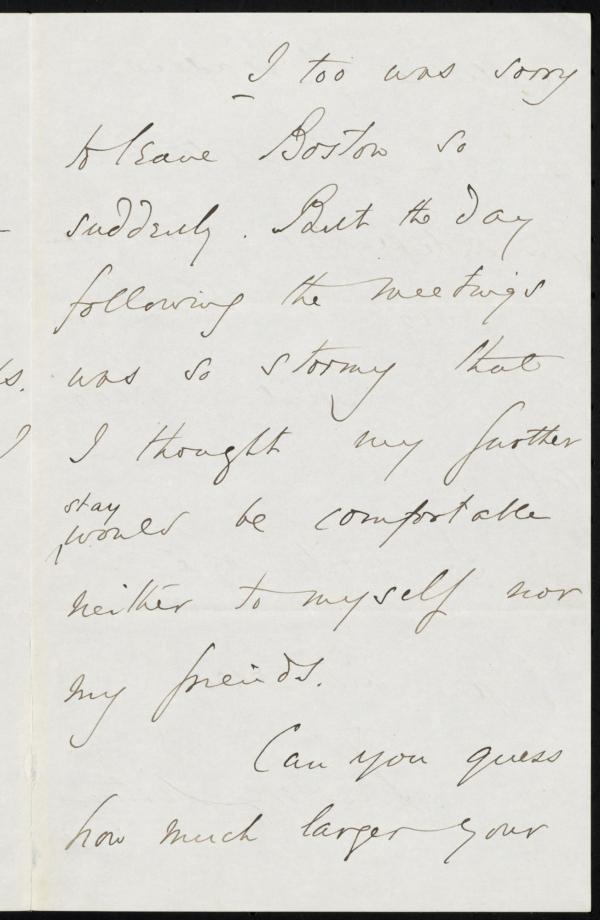 I too was sorry
to leave Boston so
suddenly. But the day
following the meetings
was so stormy that
I thought my further
stay
would be comfortable
neither to myself nor
my friends.
Can you guess
how much larger your